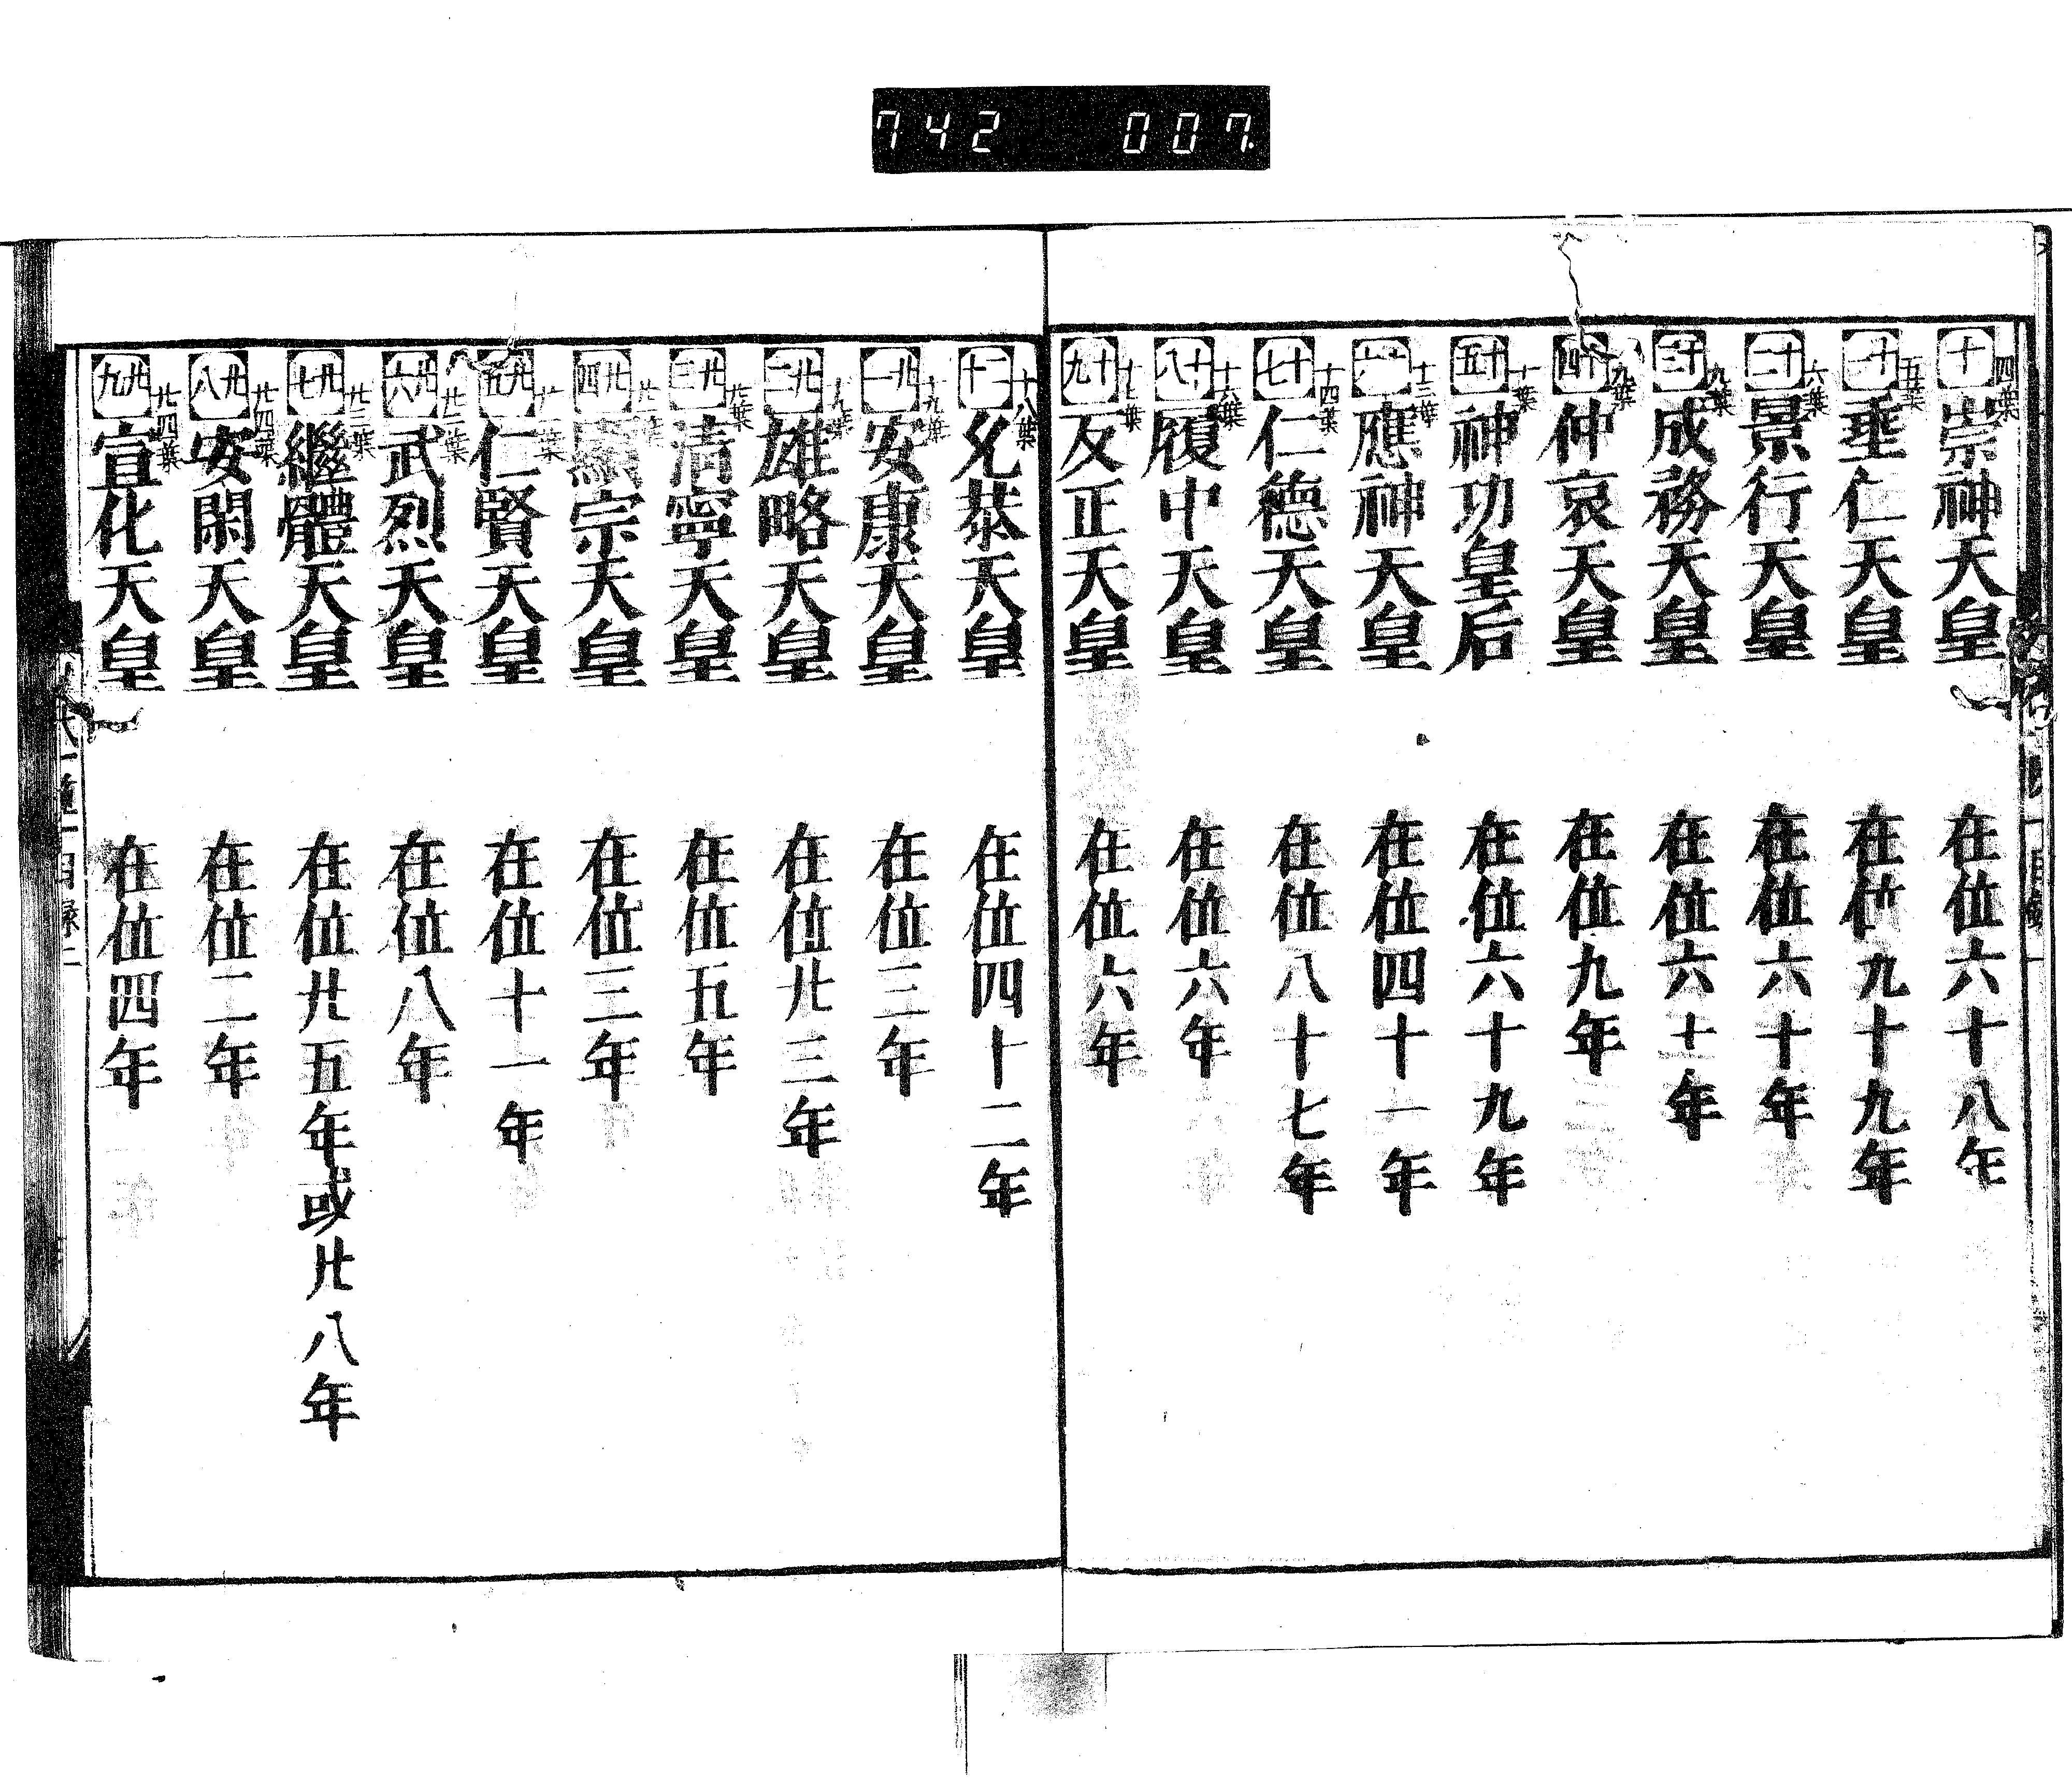 742 007.
十 四葉 崇神天皇 在位六十八年
十一 五葉 垂仁天皇 在位九十九年
十二 六葉 景行天皇 在位六十年
十三 九葉 成務天皇 在位六十一年
十四 九葉 仲哀天皇 在位九年
十五 十葉 神功皇后 在位六十九年
十六 十三葉 應神天皇 在位四十一年
十七 十四葉 仁德天皇 在位八十七年
十八 十六葉 履中天皇 在位六年
十九 十七葉 反正天皇 在位六年
二十 十八葉 允恭天皇 在位四十二年
廿一 十九葉 安康天皇 在位三年
廿二 十九葉 雄略天皇 在位廿三年
廿三 廿葉 清寧天皇 在位五年
廿四 顯宗天皇 在位三年
廿五 仁賢天皇 在位十一年
廿六 武烈天皇 在位八年
廿七 繼體天皇 在位廿五年或廿八年
廿八 廿四葉 安閑天皇 在位二年
廿九 廿四葉 宣化天皇 在位四年